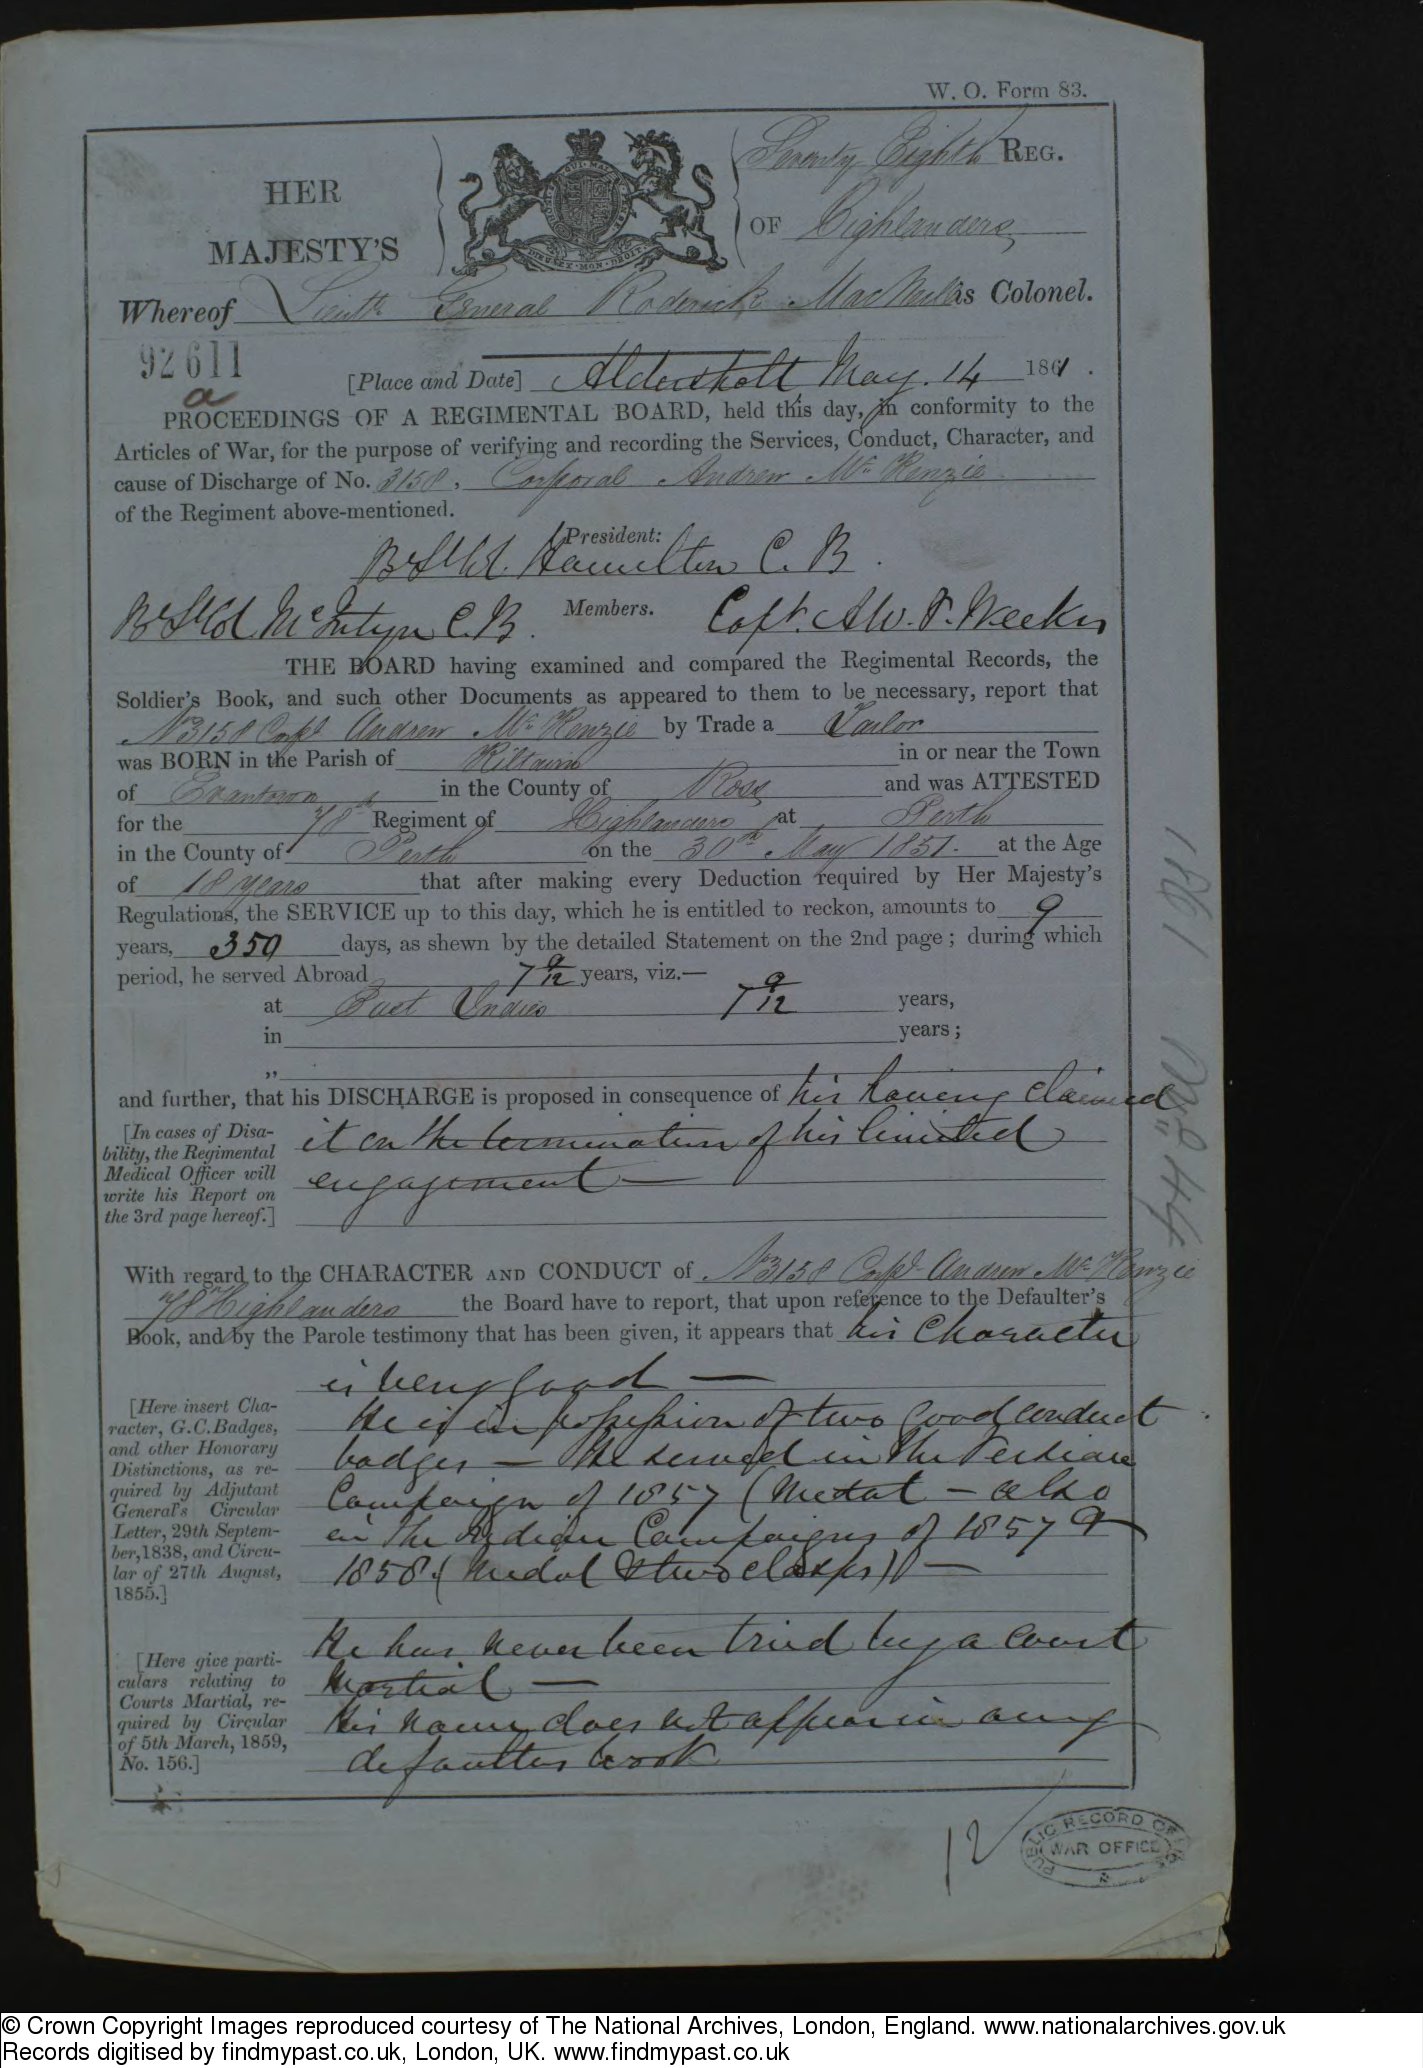 W. O. Form 83.
HER
MAJESTY'S
Seventy Eighth REG.
OF Highlanders
Whereof Lieutt. General Roderick MacNeil is Colonel.
92611
a
[Place and Date] Aldershott, May. 14 1861.
PROCEEDINGS OF A REGIMENTAL BOARD, held this day, in conformity to the
Articles of War, for the purpose of verifying and recording the Services, Conduct, Character, and
cause of Discharge of No. 3158, Corporal Andrew McKenzie
of the Regiment above-mentioned.
President:
Bt Lt Col. Hamilton C. B.
Members.
Bt Lt Col McIntyre C.B. Capt.
THE BOARD having examined and compared the Regimental Records, the
Soldier's Book, and such other Documents as appeared to them to be necessary, report that
No 3158 Corpl Andrew McKenzie by Trade a Tailor
was BORN in the Parish of Kiltairn in or near the Town
of Evantown in the County of Ross and was ATTESTED
for the 78th Regiment of Highlanders at Perth
in the County of Perth on the 30th May 1851. at the Age
of 18 years that after making every Deduction required by Her Majesty's
Regulations, the SERVICE up to this day, which he is entitled to reckon, amounts to 9
years, 350 days, as shewn by the detailed Statement on the 2nd page; during which
period, he served Abroad 7 9/12 years, viz.—
at East Indies 7 9/12 years,
in years;
„
and further, that his DISCHARGE is proposed in consequence of his having claimed
[In cases of Disa-
bility, the Regimental
Medical Officer will
write his Report on
the 3rd page hereof.]
it on the termination of his limited
engagement —
With regard to the CHARACTER AND CONDUCT of No 3158 Corpl Andrew McKenzie
78 Highlanders the Board have to report, that upon reference to the Defaulter's
Book, and by the Parole testimony that has been given, it appears that his Character
is very good —
[Here insert Cha-
racter, G.C.Badges,
and other Honorary
Distinctions, as re-
quired by Adjutant
General's Circular
Letter, 29th Septem-
ber, 1838, and Circu-
lar of 27th August,
1855.]
He is in possession of two Good Conduct
badges — He served in the Persian
Campaign of 1857 (Medal — also
in the Indian Campaigns of 1857 &
1858. (Medal & two clasps) —
[Here give parti-
culars relating to
Courts Martial, re-
quired by Circular
of 5th March, 1859,
No. 156.]
He has never been tried by a Court
Martial —
His name does not appear in any
defaulters book
12
PUBLIC RECORD OFFICE
WAR OFFICE
© Crown Copyright Images reproduced courtesy of The National Archives, London, England. www.nationalarchives.gov.uk
Records digitised by findmypast.co.uk, London, UK. www.findmypast.co.uk